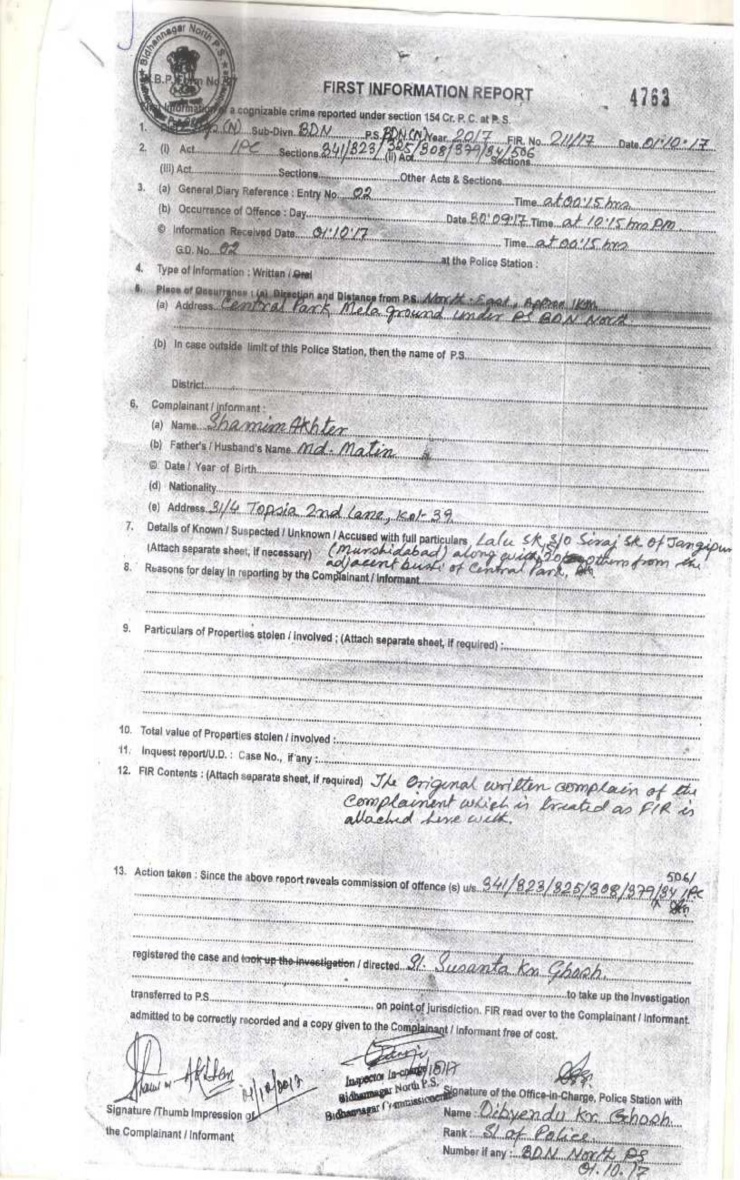 Bidhannagar North P.S.
FIRST INFORMATION REPORT
4763
a cognizable crime reported under section 154 Cr. P. C. at P.S.
1. (N) Sub-Divn. BDN P.S. BDN(N) Year 2017 FIR. No. 211/17 Date 01.10.17
2. (i) Act IPC Sections 341/323/325/308/379/34/506 (ii) Act Sections
(iii) Act Sections Other Acts & Sections
3. (a) General Diary Reference : Entry No. 02 Time at 00:15 hrs
(b) Occurrence of Offence : Day Date 30.09.17 Time at 10:15 hrs PM
© Information Received Date 01.10.17 Time at 00:15 hrs
G.D. No. 02 at the Police Station :
4. Type of Information : Writtan / Oral
5. Place of Occurrence : (a) Direction and Distance from P.S. North-East, Approx 1km
(a) Address Central Park Mela ground under PS BDN North
(b) In case outside limit of this Police Station, then the name of P.S.
District
6. Complainant / Informant :
(a) Name Shamim Akhter
(b) Father's / Husband's Name Md. Matin
© Date / Year of Birth
(d) Nationality
(e) Address 31/4 Topsia 2nd Lane, Kol-39
7. Details of Known / Suspected / Unknown / Accused with full particulars, Lalu SK S/o Siraj SK of Jangipur
(Attach separate sheet, If necessary) (Murshidabad) along with others from the
adjacent busti of Central Park,
8. Reasons for delay in reporting by the Complainant / Informant
9. Particulars of Properties stolen / involved ; (Attach separate sheet, if required) :
10. Total value of Properties stolen / involved :
11. Inquest report/U.D. : Case No., if any :
12. FIR Contents : (Attach separate sheet, if required) The Original written complain of the
Complainent which is treated as FIR is
attached here with.
506/
13. Action taken : Since the above report reveals commission of offence (s) u/s 341/323/325/308/379/34 IPC
registered the case and took up the investigation / directed SI. Susanta Kr Ghosh.
to take up the Investigation
transferred to P.S. on point of jurisdiction. FIR read over to the Complainant / Informant.
admitted to be correctly recorded and a copy given to the Complainant / Informant free of cost.
Inspector In-charge
Bidhannagar North P.S.
Bidhannagar Commissionerate
Signature of the Office-in-Charge, Police Station with
Signature /Thumb Impression of
the Complainant / Informant
Name : Dibyendu Kr. Ghosh
Rank : SI of Police
Number if any : BDN North PS
01.10.17